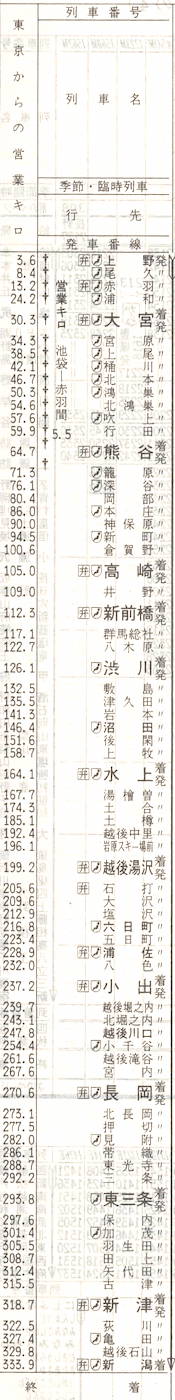 列車番号
東京からの営業キロ
列車名
季節・臨時列車
行先
発車番線
3.6 弁 上野発
8.4 尾久〃
13.2 弁 赤羽〃
24.2 浦和〃
営業キロ 池袋―赤羽間 5.5
30.3 弁 大宮着発
34.3 宮原〃
38.5 上尾〃
42.1 桶川〃
46.7 北本〃
50.3 鴻巣〃
54.6 北鴻巣〃
57.6 吹上〃
59.9 行田〃
64.7 弁 熊谷着発
71.3 籠原〃
76.1 深谷〃
80.4 岡部〃
86.0 本庄〃
90.0 神保原〃
94.5 新町〃
100.6 倉賀野〃
105.0 弁 高崎着発
109.0 井野〃
112.3 弁 新前橋着発
117.1 群馬総社〃
122.7 八木原〃
126.1 渋川着発
132.5 敷島〃
135.5 津久田〃
141.3 岩本〃
146.4 沼田〃
151.6 後閑〃
158.7 上牧〃
164.1 弁 水上着発
167.7 湯檜曽〃
174.3 土合〃
185.1 土樽〃
192.4 越後中里〃
196.1 岩原スキー場前〃
199.2 弁 越後湯沢着発
205.6 弁 石打〃
209.6 大沢〃
212.9 塩沢〃
216.8 六日町〃
223.4 五日町〃
228.9 弁 浦佐〃
232.0 八色〃
237.2 弁 小出着発
239.7 越後堀之内〃
243.1 北堀之内〃
247.8 越後川口〃
254.4 小千谷〃
261.6 越後滝谷〃
267.6 宮内〃
270.6 弁 長岡着発
273.1 北長岡〃
277.5 押切〃
282.0 見附〃
286.1 帯織〃
288.7 東光寺〃
292.2 三条〃
293.8 東三条着発
297.6 保内〃
301.4 加茂〃
305.5 羽生田〃
308.7 田上〃
312.4 矢代田〃
315.5 古津〃
318.7 弁 新津着発
322.5 荻川〃
327.4 亀田〃
329.8 越後石山〃
333.9 弁 新潟着
終着